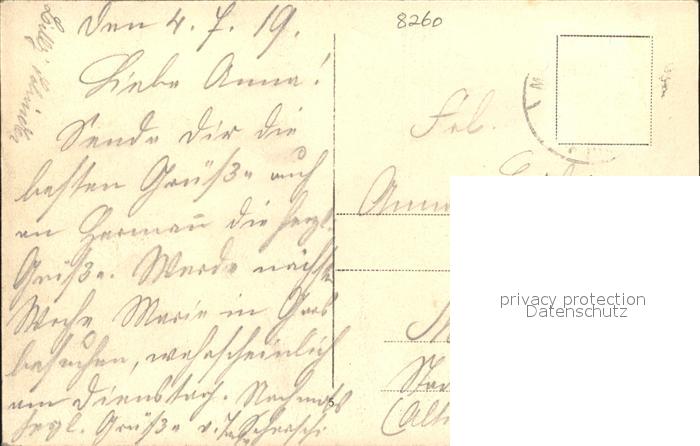 den 4. 7. 19.
Liebe Anna!
Sende Dir die
besten Grüße auch
an Hermann die herzl.
Grüße. Werde nächste
Woche Marie in
besuchen, wahrscheinlich
am Dienstag. Nochmals
herzl. Grüße v.
8260
Frl.
Anna
privacy protection
Datenschutz